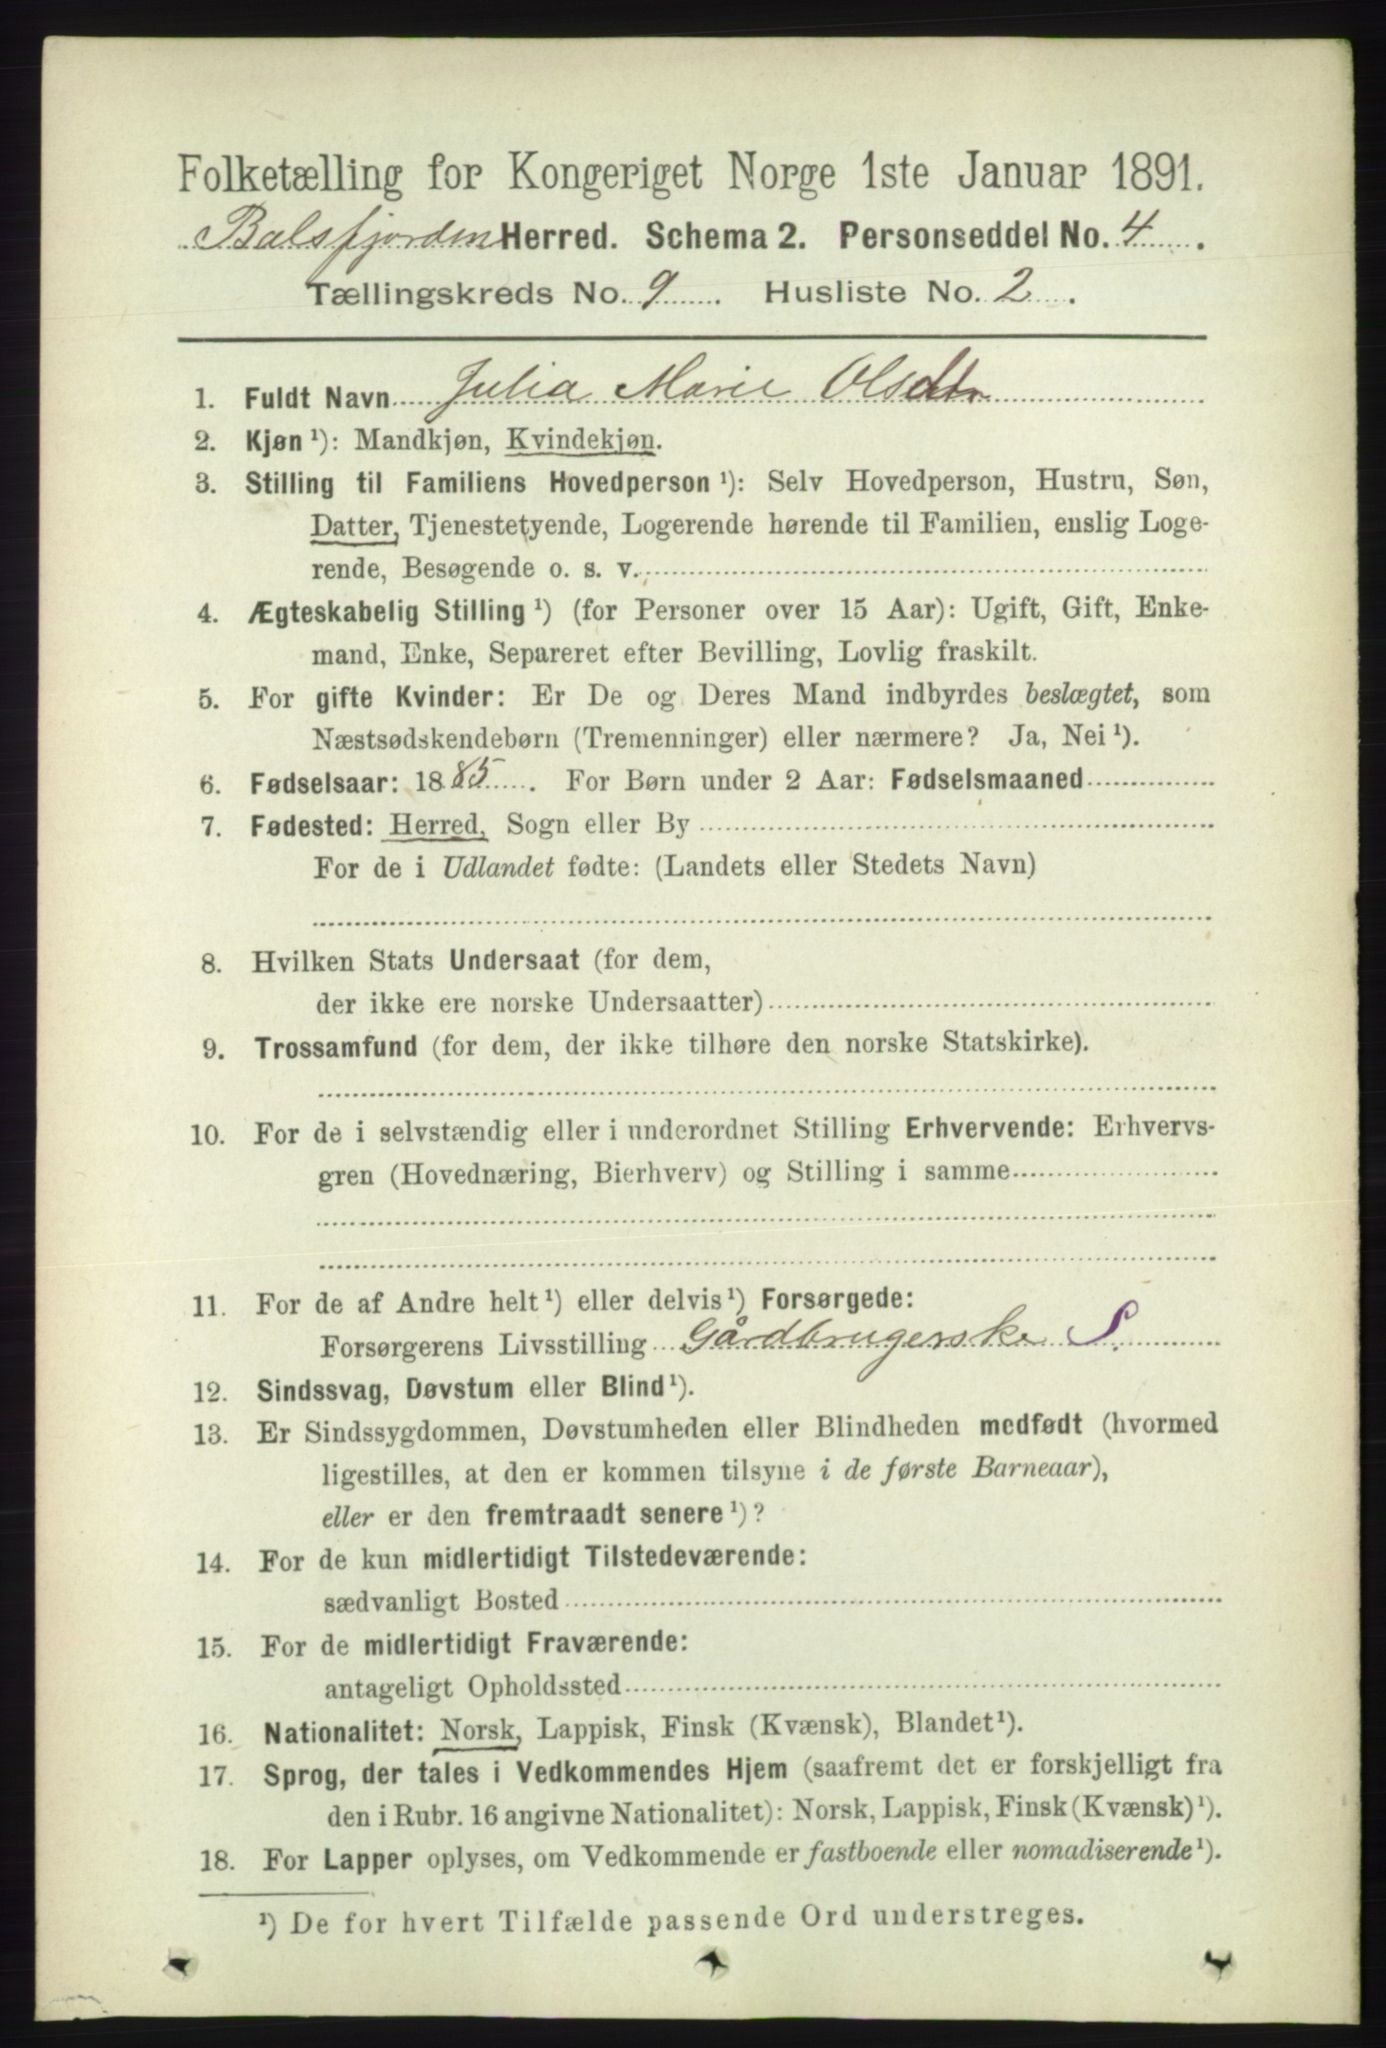 Folketælling for Kongeriget Norge 1ste Januar 1891.
Balsfjorden Herred. Schema 2. Personseddel No. 4.
Tællingskreds No. 9. Husliste No. 2.
1. Fuldt Navn Julia Marie Olsdtr
2. Kjøn ¹): Mandkjøn, Kvindekjøn.
3. Stilling til Familiens Hovedperson ¹): Selv Hovedperson, Hustru, Søn,
Datter, Tjenestetyende, Logerende hørende til Familien, enslig Loge-
rende, Besøgende o. s. v.
4. Ægteskabelig Stilling ¹) (for Personer over 15 Aar): Ugift, Gift, Enke-
mand, Enke, Separeret efter Bevilling, Lovlig fraskilt.
5. For gifte Kvinder: Er De og Deres Mand indbyrdes beslægtet, som
Næstsødskendebørn (Tremenninger) eller nærmere? Ja, Nei ¹).
6. Fødselsaar: 1885. For Børn under 2 Aar: Fødselsmaaned
7. Fødested: Herred, Sogn eller By
For de i Udlandet fødte: (Landets eller Stedets Navn)
8. Hvilken Stats Undersaat (for dem,
der ikke ere norske Undersaatter)
9. Trossamfund (for dem, der ikke tilhøre den norske Statskirke).
10. For de i selvstændig eller i underordnet Stilling Erhvervende: Erhvervs-
gren (Hovednæring, Bierhverv) og Stilling i samme
11. For de af Andre helt ¹) eller delvis ¹) Forsørgede:
Forsørgerens Livsstilling Gårdbrugerske S.
12. Sindssvag, Døvstum eller Blind ¹).
13. Er Sindssygdommen, Døvstumheden eller Blindheden medfødt (hvormed
ligestilles, at den er kommen tilsyne i de første Barneaar),
eller er den fremtraadt senere ¹)?
14. For de kun midlertidigt Tilstedeværende:
sædvanligt Bosted
15. For de midlertidigt Fraværende:
antageligt Opholdssted
16. Nationalitet: Norsk, Lappisk, Finsk (Kvænsk), Blandet ¹).
17. Sprog, der tales i Vedkommendes Hjem (saafremt det er forskjelligt fra
den i Rubr. 16 angivne Nationalitet): Norsk, Lappisk, Finsk (Kvænsk) ¹).
18. For Lapper oplyses, om Vedkommende er fastboende eller nomadiserende ¹).
¹) De for hvert Tilfælde passende Ord understreges.